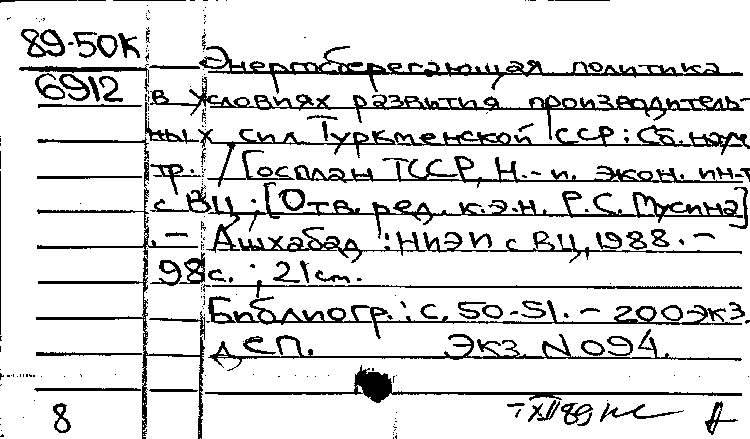 89-50К
6912
Энергосберегающая политика
в условиях развития производитель-
ных сил Туркменской ССР : Сб. науч.
тр. / Госплан ТССР, Н.-и. экон. ин-т
с ВЦ ; [Отв. ред. к.э.н. Р.С. Мусина]
. — Ашхабад : НИЭИ с ВЦ, 1988. —
98с. ; 21см.
Библиогр.: с. 50-51. — 200экз.
ДСП. Экз. N 094.
8